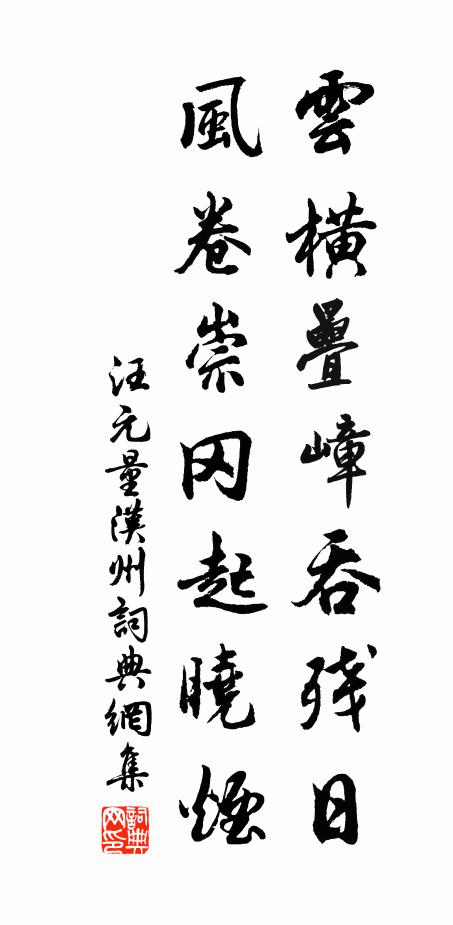 雲橫疊嶂吞残日
風卷崇冈起曉煙
汪元量漢州詞典網集
詞典网印